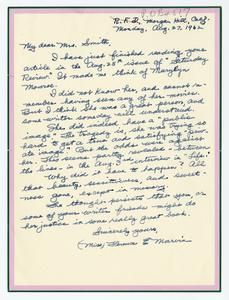 P.O. Box 517
R.F.D., Morgan Hill, Calif.
Monday, Aug. 27, 1962
My dear Mrs. Smith,
I have just finished reading your
article in the Aug. 25th issue of "Saturday
Review". It made me think of Marylyn
Monroe.
I did not know her, and cannot re-
member having seen any of her movies.
But I believe she was a great person, and
some writer someday will understand.
She did indeed have a "public
image". The tragedy is, she was trying so
hard to get a time and satisfying "priv-
ate image". And the odds were against
her. This seems partly revealed between
the lines, in the story - interview in "Life".
Why did it have to happen? All
that beauty, sensitiveness, and sweet-
ness gone, except in memory.
The thought persists that you, or
some of your writer friends might do
her justice in some really great book.
Sincerely yours,
(Miss) E. Marvin